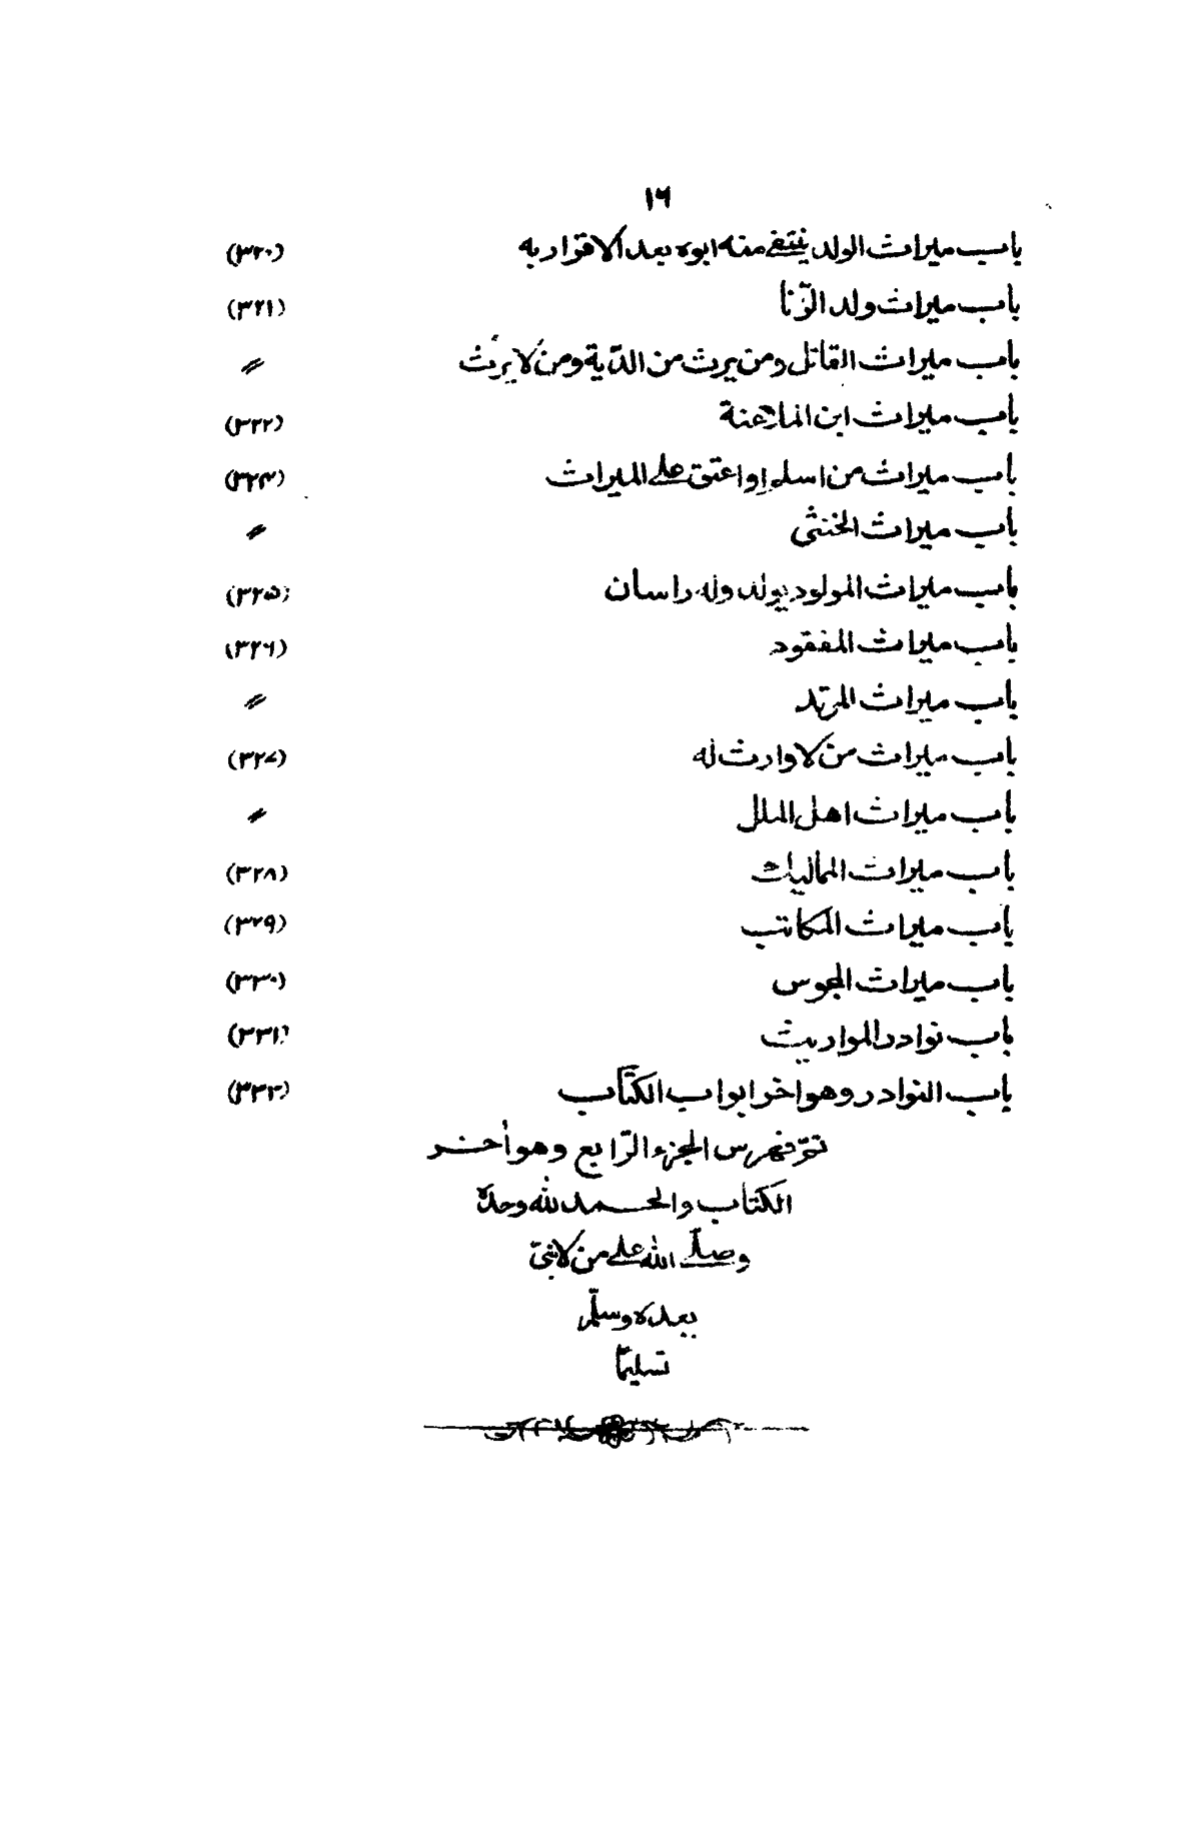 ١٦
باب ميراث الولد ينتفي منه ابوه بعد الاقرار به (٣٢٠)
باب ميراث ولد الزّنا (٣٢١)
باب ميراث القاتل ومن يرث من الدّية ومن لا يرث 〃
باب ميراث ابن الملاعنة (٣٢٢)
باب ميراث من اسلم او اعتق على الميراث (٣٢٤)
باب ميراث الخنثى 〃
باب ميراث المولود يولد وله راسان (٣٢٥)
باب ميراث المفقود (٣٢٦)
باب ميراث المرتد 〃
باب ميراث من لا وارث له (٣٢٧)
باب ميراث اهل الملل 〃
باب ميراث المماليك (٣٢٨)
باب ميراث المكاتب (٣٢٩)
باب ميراث المجوس (٣٣٠)
باب نوادر المواريث (٣٣١)
باب النوادر وهو اخر ابواب الكتاب (٣٣٣)
تمّ فهرس الجزء الرّابع وهو أخر
الكتاب والحمد لله وحده
وصلّى الله على من لا نبيّ
بعده وسلّم
تسليمًا